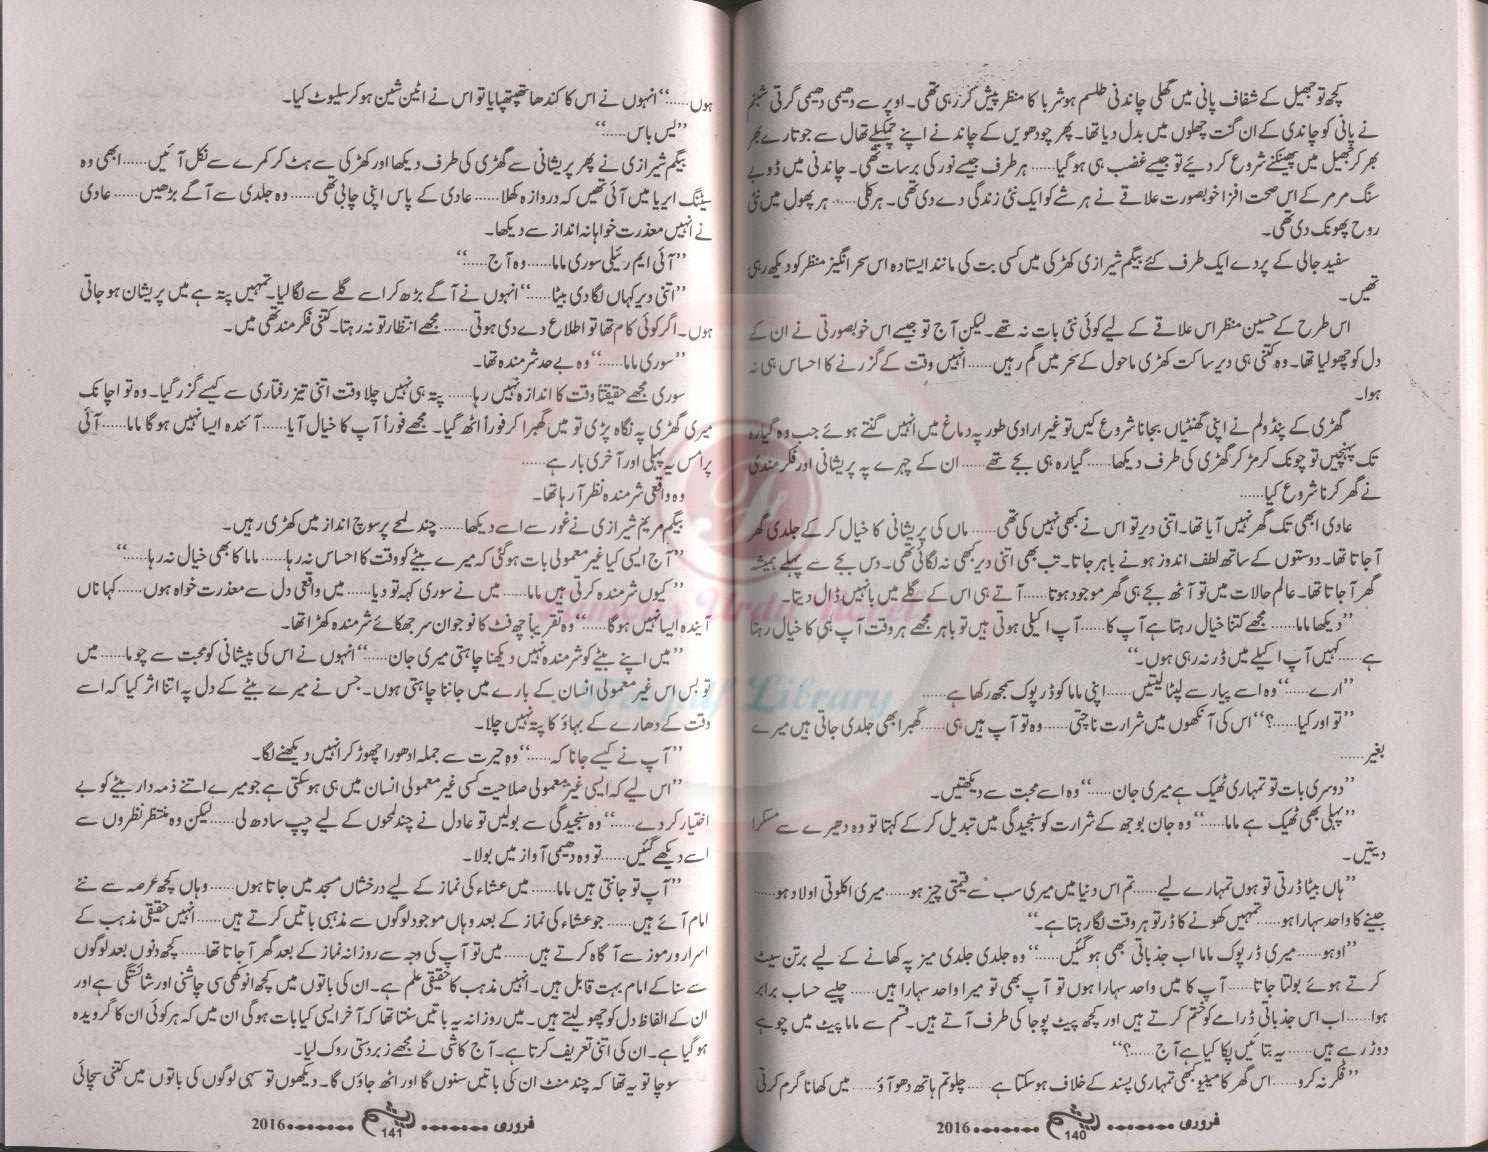 کچھ تو جھیل کے شفاف پانی میں گھلی چاندنی طلسم ہوشربا کا منظر پیش کر رہی تھی۔ اوپر سے دھیمی دھیمی گرتی شبنم
نے پانی کو چاندی کے ان گنت چھلوں میں بدل دیا تھا۔ پھر چودھویں کے چاند نے اپنے چمکیلے تھال سے جو تارے بھر
بھر کر جھیل میں پھینکنے شروع کر دئیے تو جیسے غضب ہی ہو گیا...... ہر طرف جیسے نور کی برسات تھی۔ چاندنی میں ڈوبے
سنگ مرمر کے اس صحت افزا خوبصورت علاقے نے ہر شے کو ایک نئی زندگی دے دی تھی۔ ہر کلی...... ہر پھول میں نئی
روح پھونک دی تھی۔
سفید جالی کے پردے ایک طرف کئے بیگم شیرازی کھڑکی میں کسی بت کی مانند ایستادہ اس سحر انگیز منظر کو دیکھ رہی
تھیں۔
اس طرح کے حسین منظر اس علاقے کے لیے کوئی نئی بات نہ تھے۔ لیکن آج تو جیسے اس خوبصورتی نے ان کے
دل کو چھو لیا تھا۔ وہ کتنی ہی دیر ساکت کھڑی ماحول کے سحر میں گم رہیں...... انہیں وقت کے گزرنے کا احساس ہی نہ
ہوا۔
گھڑی کے پنڈولم نے اپنی گھنٹیاں بجانا شروع کیں تو غیر ارادی طور پہ دماغ میں انہیں گنتے ہوئے جب وہ گیارہ
تک پہنچیں تو چونک کر مڑ کر گھڑی کی طرف دیکھا...... گیارہ ہی بجے تھے...... ان کے چہرے پہ پریشانی اور فکر مندی
نے گھر کرنا شروع کیا......
عادی ابھی تک گھر نہیں آیا تھا۔ اتنی دیر تو اس نے کبھی نہیں کی تھی...... ماں کی پریشانی کا خیال کر کے جلدی گھر
آ جاتا تھا۔ دوستوں کے ساتھ لطف اندوز ہونے باہر جاتا۔ تب بھی اتنی دیر کبھی نہ لگائی تھی۔ دس بجے سے پہلے ہمیشہ
گھر آ جاتا تھا۔ عالم حالات میں تو آٹھ بجے ہی گھر موجود ہوتا...... آتے ہی اس کے گلے میں بانہیں ڈال دیتا۔
”دیکھا ماما...... مجھے کتنا خیال رہتا ہے آپ کا...... آپ اکیلی ہوتی ہیں تو باہر مجھے ہر وقت آپ ہی کا خیال رہتا
ہے...... کہیں آپ اکیلے میں ڈر نہ رہی ہوں۔“
”ارے......“ وہ اسے پیار سے لپٹا لیتیں...... اپنی ماما کو ڈرپوک سمجھ رکھا ہے......
”تو اور کیا......؟“ اس کی آنکھوں میں شرارت ناچتی...... وہ تو آپ ہیں ہی...... گھبرا بھی جلدی جاتی ہیں میرے
بغیر......
”دوسری بات تو تمہاری ٹھیک ہے میری جان......“ وہ اسے محبت سے دیکھتیں۔
”پہلی بھی ٹھیک ہے ماما......“ وہ جان بوجھ کے شرارت کو سنجیدگی میں تبدیل کر کے کہتا تو وہ دھیرے سے مسکرا
دیتیں۔
”ہاں بیٹا ڈرتی تو ہوں تمہارے لیے...... تم اس دنیا میں میری سب سے قیمتی چیز ہو...... میری اکلوتی اولاد ہو......
جینے کا واحد سہارا ہو...... تمہیں کھونے کا ڈر تو ہر وقت لگا رہتا ہے۔“
”اوہو...... میری ڈرپوک ماما اب جذباتی بھی ہو گئیں......“ وہ جلدی جلدی میز پہ کھانے کے لیے برتن سیٹ
کرتے ہوئے بولتا جاتا...... آپ کا میں واحد سہارا ہوں تو آپ بھی تو میرا واحد سہارا ہیں...... چلیے حساب برابر
ہوا...... اب اس جذباتی ڈرامے کو ختم کرتے ہیں اور کچھ پیٹ پوجا کی طرف آتے ہیں۔ قسم سے ماما پیٹ میں چوہے
دوڑ رہے ہیں...... یہ بتائیں پکا کیا ہے آج......؟“
”فکر نہ کرو...... اس گھر کا مینیو کبھی تمہاری پسند کے خلاف ہو سکتا ہے...... چلو تم ہاتھ دھو آؤ...... میں کھانا گرم کرتی
فروری ....... 140 ....... 2016
ہوں......“ انہوں نے اس کا کندھا تھپتھپایا تو اس نے اٹین شین ہو کر سلیوٹ کیا۔
”یس باس......“
بیگم شیرازی نے پھر پریشانی سے گھڑی کی طرف دیکھا اور کھڑکی سے ہٹ کر کمرے سے نکل آئیں...... ابھی وہ
سیٹنگ ایریا میں آئی تھیں کہ دروازہ کھلا...... عادی کے پاس اپنی چابی تھی...... وہ جلدی سے آگے بڑھیں...... عادی
نے انہیں معذرت خواہانہ انداز سے دیکھا۔
”آئی ایم رئیلی سوری ماما...... وہ آج......“
”اتنی دیر کہاں لگا دی بیٹا......“ انہوں نے آگے بڑھ کر اسے گلے سے لگا لیا۔ تمہیں پتہ ہے میں پریشان ہو جاتی
ہوں۔ اگر کوئی کام تھا تو اطلاع دے دی ہوتی...... مجھے انتظار تو نہ رہتا۔ کتنی فکر مند تھی میں۔
”سوری ماما......“ وہ بے حد شرمندہ تھا۔
سوری مجھے حقیقتاً وقت کا اندازہ نہیں رہا...... پتہ ہی نہیں چلا وقت اتنی تیز رفتاری سے کیسے گزر گیا۔ وہ تو اچانک
میری گھڑی پہ نگاہ پڑی تو میں گھبرا کر فوراً اٹھ گیا۔ مجھے فوراً آپ کا خیال آیا...... آئندہ ایسا نہیں ہو گا ماما...... آئی
پرامس یہ پہلی اور آخری بار ہے......
وہ واقعی شرمندہ نظر آ رہا تھا۔
بیگم مریم شیرازی نے غور سے اسے دیکھا...... چند لمحے پر سوچ انداز میں کھڑی رہیں۔
”آج ایسی کیا غیر معمولی بات ہو گئی کہ میرے بیٹے کو وقت کا احساس نہ رہا...... ماما کا بھی خیال نہ رہا......“
”کیوں شرمندہ کرتی ہیں ماما...... میں نے سوری کہہ تو دیا...... میں واقعی دل سے معذرت خواہ ہوں...... کہا ناں
آیندہ ایسا نہیں ہو گا......“ وہ تقریباً چھ فٹ کا نوجوان سر جھکائے شرمندہ کھڑا تھا۔
”میں اپنے بیٹے کو شرمندہ نہیں دیکھنا چاہتی میری جان......“ انہوں نے اس کی پیشانی کو محبت سے چوما...... میں
تو بس اس غیر معمولی انسان کے بارے میں جاننا چاہتی ہوں۔ جس نے میرے بیٹے کے دل پہ اتنا اثر کیا کہ اسے
وقت کے دھارے کے بہاؤ کا پتہ نہیں چلا۔
”آپ نے کیسے جانا کہ......“ وہ حیرت سے جملہ ادھورا چھوڑ کر انہیں دیکھنے لگا۔
”اس لیے کہ ایسی غیر معمولی صلاحیت کسی غیر معمولی انسان میں ہی ہو سکتی ہے جو میرے اتنے ذمہ دار بیٹے کو بے
اختیار کر دے......“ وہ سنجیدگی سے بولیں تو عادل نے چند لمحوں کے لیے چپ سادھ لی...... لیکن وہ منتظر نظروں سے
اسے دیکھے گئیں...... تو وہ دھیمی آواز میں بولا۔
”آپ تو جانتی ہیں ماما...... میں عشاء کی نماز کے لیے درخشاں مسجد میں جاتا ہوں...... وہاں کچھ عرصہ سے نئے
امام آئے ہیں...... جو عشاء کی نماز کے بعد وہاں موجود لوگوں سے مذہبی باتیں کرتے ہیں...... انہیں حقیقی مذہب کے
اسرار و رموز سے آگاہ کرتے ہیں...... میں تو آپ کی وجہ سے روزانہ نماز کے بعد گھر آ جاتا تھا...... کچھ دنوں بعد لوگوں
سے سنا کے امام بہت قابل ہیں۔ انہیں مذہب کا حقیقی علم ہے۔ ان کی باتوں میں کچھ انوکھی سی چاشنی اور شائستگی ہے اور
ان کے الفاظ دل کو چھو لیتے ہیں۔ میں روزانہ یہ باتیں سنتا تھا کہ آخر ایسی کیا بات ہو گی ان میں کہ ہر کوئی ان کا گرویدہ
ہو گیا ہے۔ ان کی اتنی تعریف کرتا ہے۔ آج کاشی نے مجھے زبردستی روک لیا۔
سوچا تو یہ تھا کہ چند منٹ ان کی باتیں سنوں گا اور اٹھ جاؤں گا۔ دیکھوں تو سہی لوگوں کی باتوں میں کتنی سچائی
فروری ....... 141 ....... 2016
Famous Urdu Novels
Free pdf Library